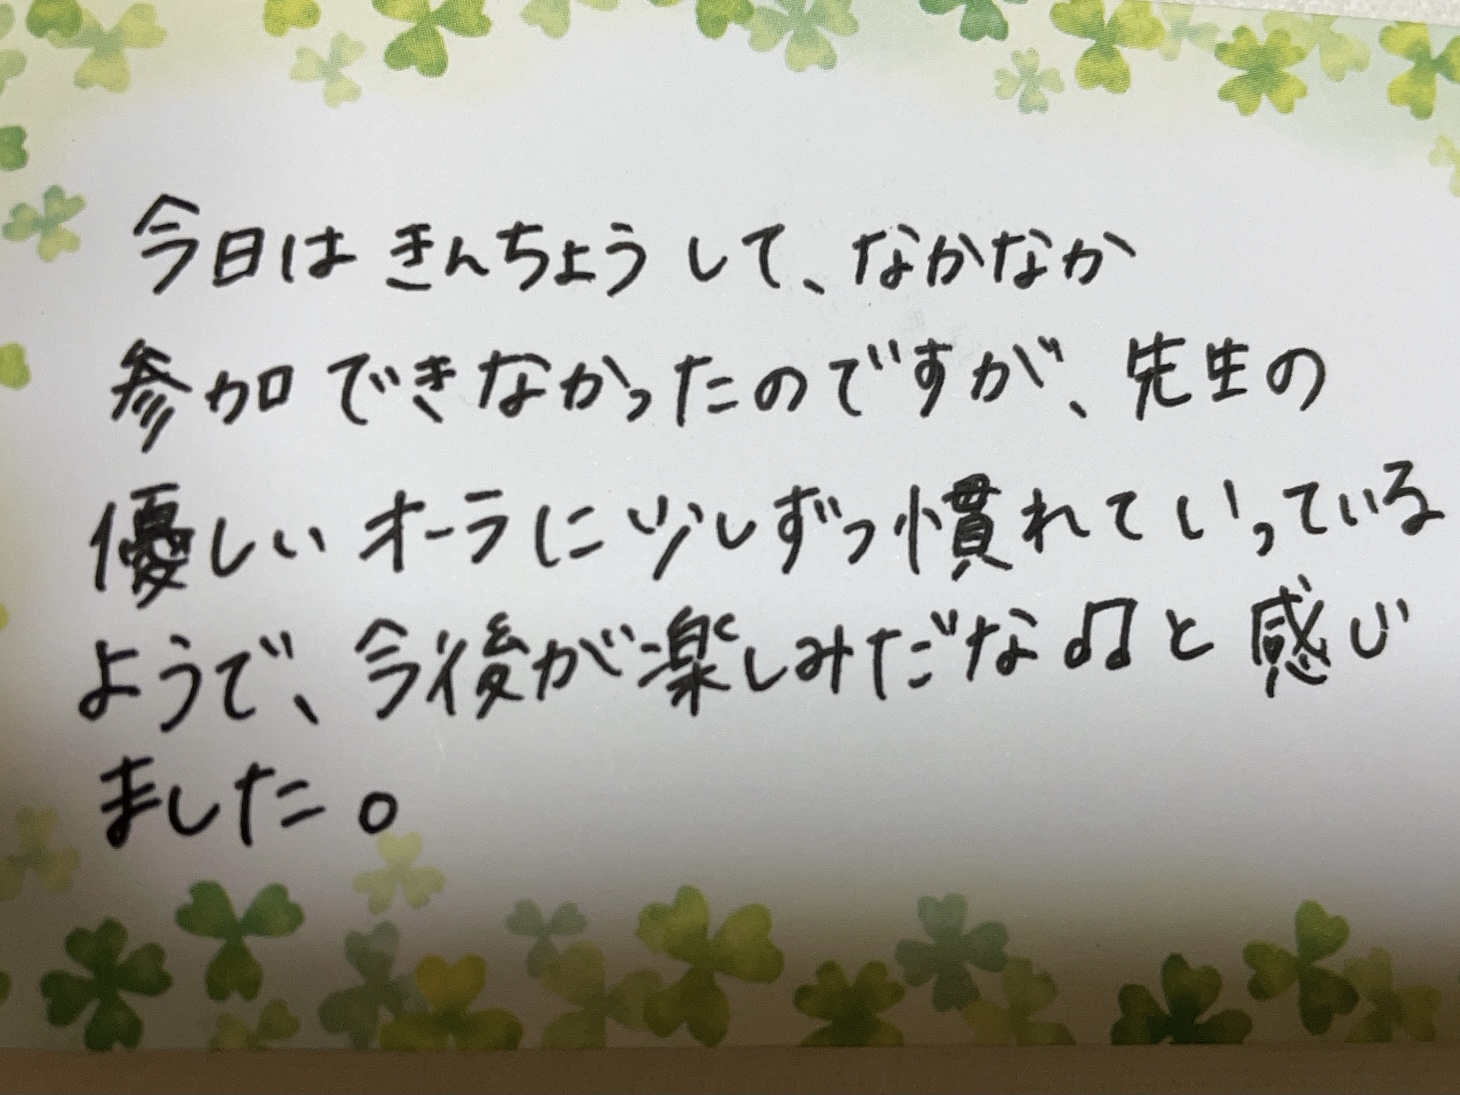 今日は きんちょう して、なかなか
参加 できなかったのですが、先生の
優しい オーラに少しずつ慣れて いっている
ようで、今後が楽しみだな♫と 感じ
ました。